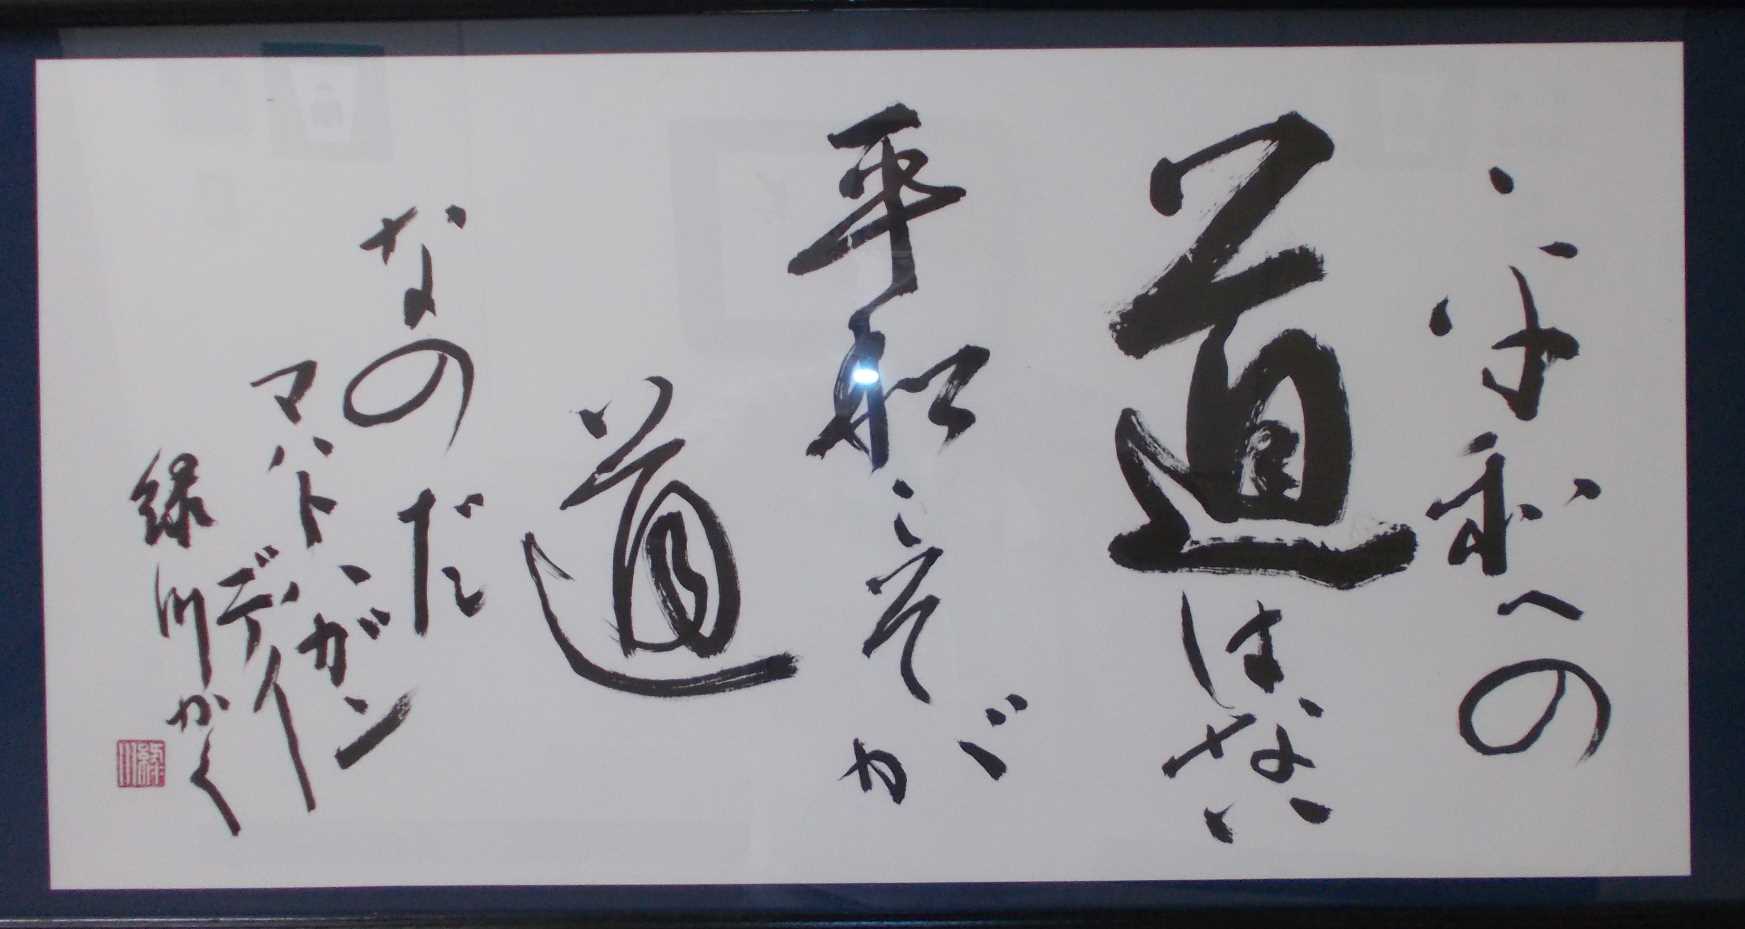 平和への
道はない
平和こそが
道
なのだ
マハトハガン
デイー
緑川かく
緑川